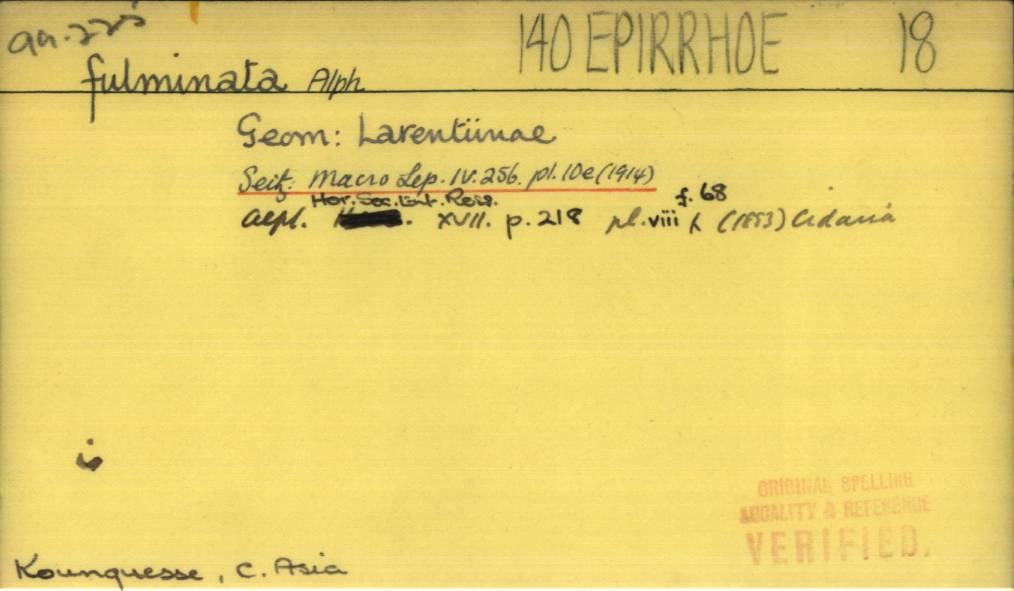 140 EPIRRHOE 18
fulminata Alph.
Geom: Larentiinae
Seitz: Macro Lep. IV. 256. pl. 10e (1914)
Hor. Soc. Ent. Ross. f. 68
XVII. p. 218 pl. viii (1883) Cidaria
ORIGINAL SPELLING
LOCALITY & REFERENCE
VERIFIED.
Kounquesse, C. Asia